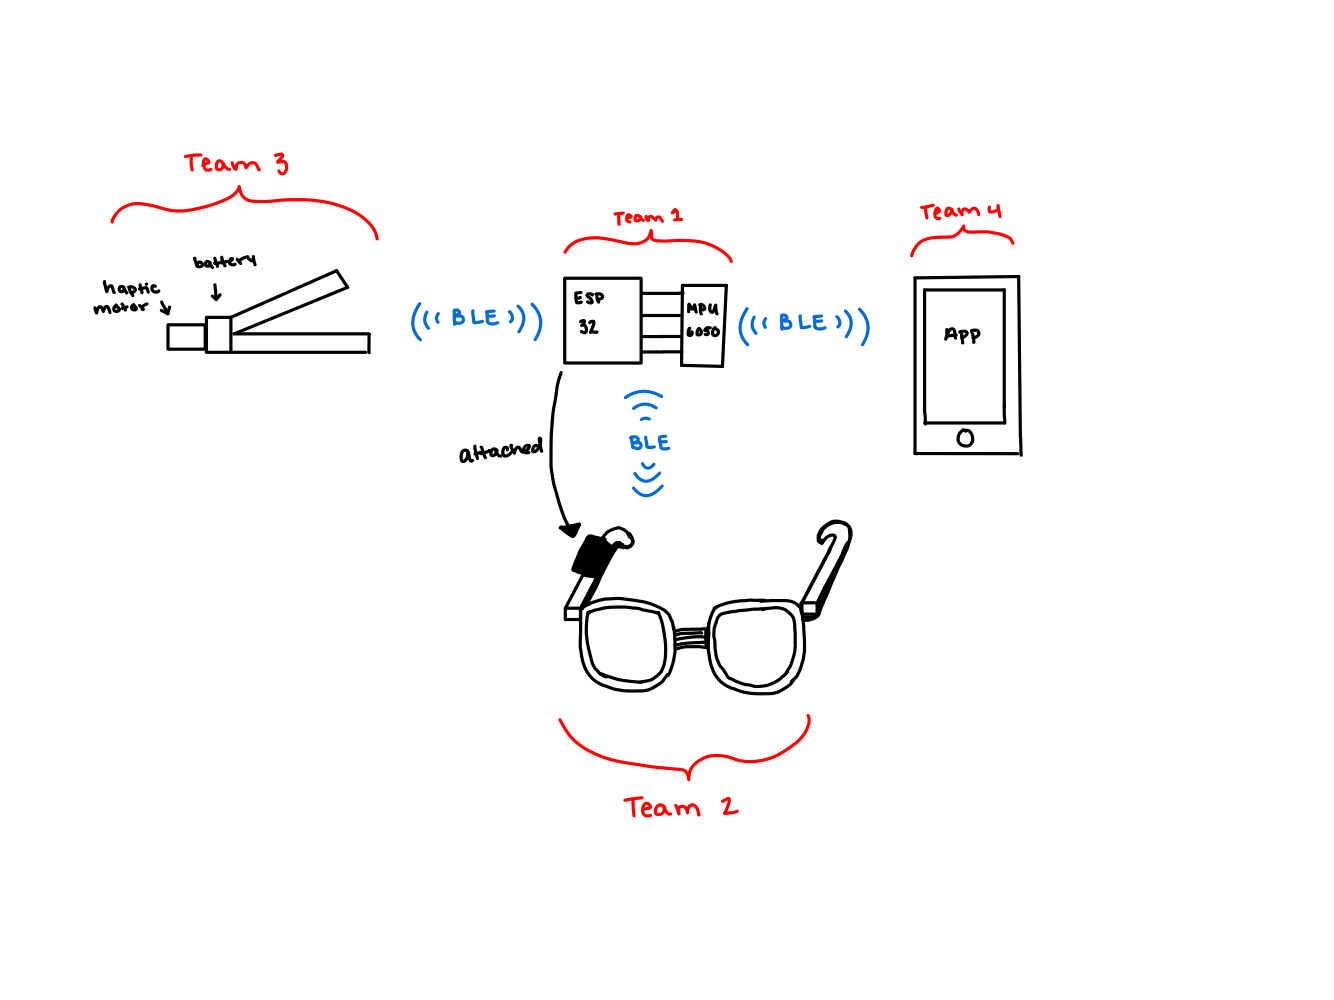 Team 3
battery
haptic
motor
BLE
Team 1
ESP
32
MPU
6050
BLE
Team 4
App
attached
BLE
Team 2